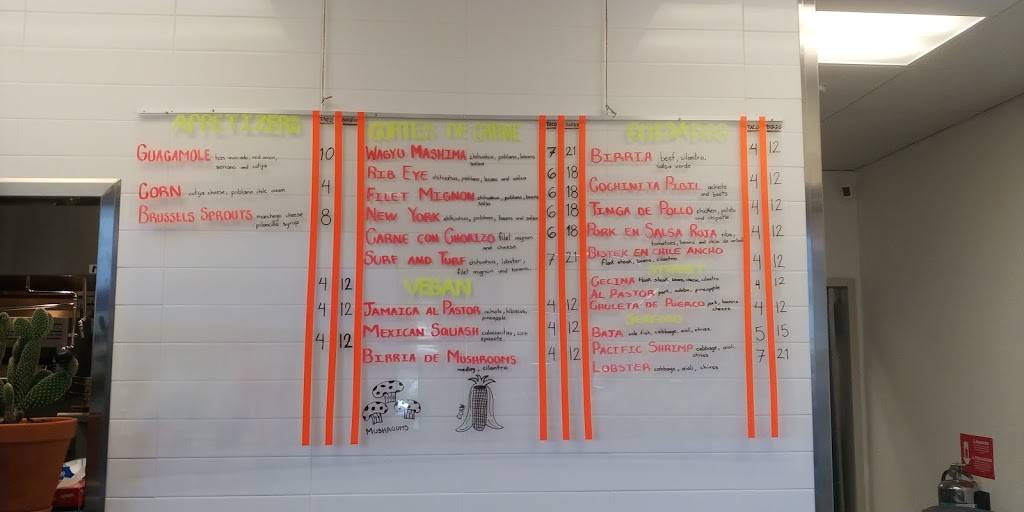 APPETIZERS
GUACAMOLE 10
serrano and cotija
CORN cotija cheese, poblano 4
BRUSSELS SPROUTS manchego cheese 8
piloncillo syrup
4 12
4 12
4 12
TACO
CORTES DE CARNE
WAGYU MASHIMA chihuahua, poblano, beans 7 21
salsa
RIB EYE chihuahua, poblano, beans and salsa 6 18
FILET MIGNON chihuahua, poblano, beans 6 18
salsa
NEW YORK chihuahua, poblano, beans and salsa 6 18
CARNE CON CHORIZO filet mignon 6 18
and cheese
SURF AND TURF chihuahua, lobster, 7 21
filet mignon and beans
VEGAN
JAMAICA AL PASTOR achiote, hibiscus, 4 12
pineapple
MEXICAN SQUASH calabacitas, corn 4 12
epazote
BIRRIA DE MUSHROOMS 4 12
medley, cilantro
MUSHROOMS
CORN
TACO
GUISADOS
BIRRIA beef, cilantro, 4 12
salsa verde
COCHINITA PIBIL achiote 4 12
and beets
TINGA DE POLLO chicken, potato 4 12
and chipotle
PORK EN SALSA ROJA ribs, 4 12
tomatoes, beans and chile de arbol
BISTEK EN CHILE ANCHO
flank steak, beans, cilantro 4 12
STREET
CECINA 4 12
AL PASTOR pork, adobo, pineapple
CHULETA DE PUERCO pork, banana 4 12
cheese
SEAFOOD
BAJA cod fish, cabbage, aioli, chives 5 15
PACIFIC SHRIMP cabbage, aioli, 7 21
chives
LOBSTER cabbage, aioli, chives